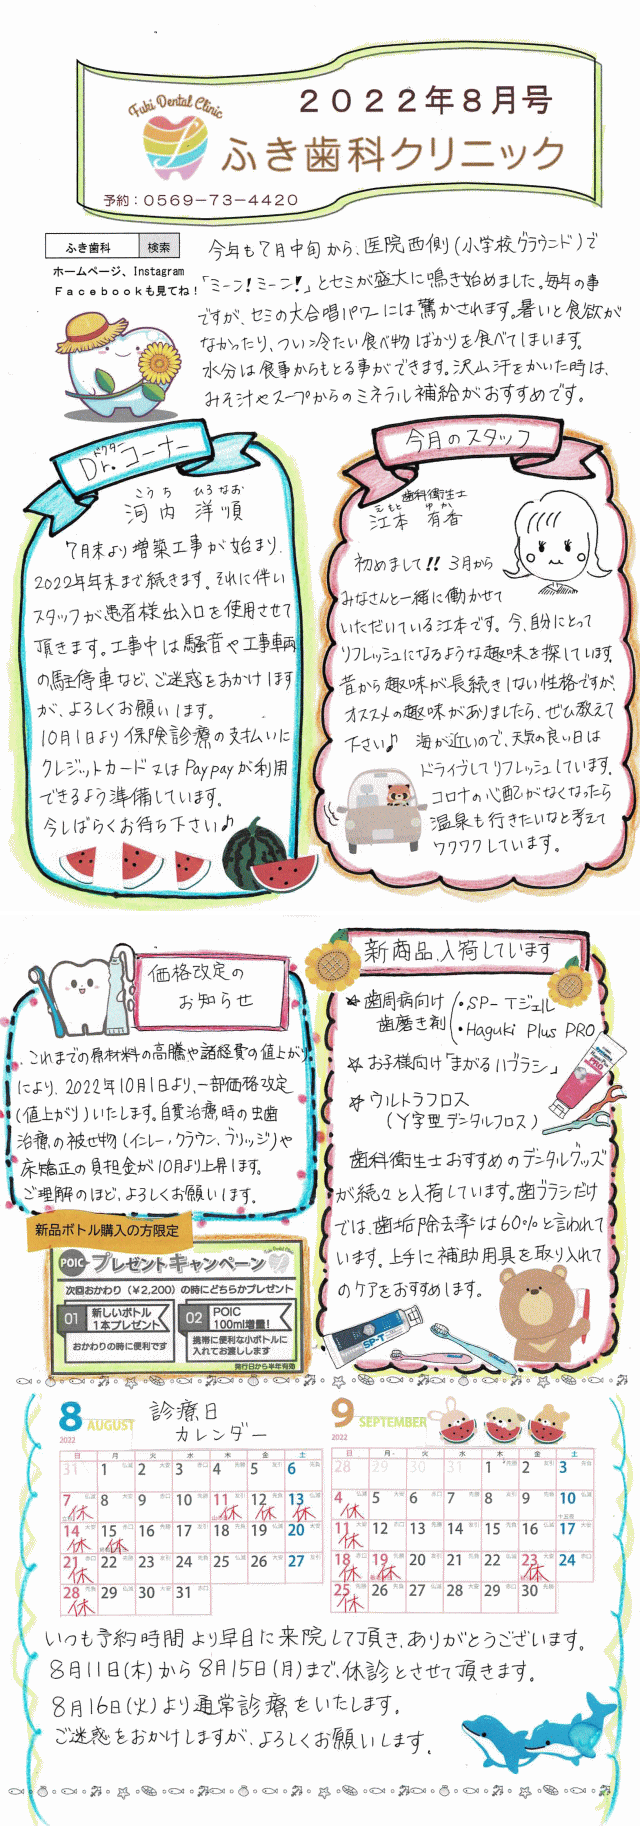 Fuki Dental Clinic
2022年8月号
ふき歯科クリニック
予約：0569－73－4420
ふき歯科 検索
ホームページ、Instagram
Facebookも見てね！
今年も7月中旬から、医院西側(小学校グラウンド)で
「ミーン！ミーン！」とセミが盛大に鳴き始めました。毎年の事
ですが、セミの大合唱パワーには驚かされます。暑いと食欲が
なかったり、ついつい冷たい食べ物ばかりを食べてしまいます。
水分は食事からもとる事ができます。沢山汗をかいた時は、
みそ汁やスープからのミネラル補給がおすすめです。
ドクター
Dr.コーナー
こうち ひろなお
河内 洋順
7月末より増築工事が始まり、
2022年年末まで続きます。それに伴い
スタッフが患者様出入口を使用させて
頂きます。工事中は騒音や工事車両
の駐停車など、ご迷惑をおかけします
が、よろしくお願いします。
10月1日より保険診療の支払いに
クレジットカード又はPaypayが利用
できるよう準備しています。
今しばらくお待ち下さい♪
今月のスタッフ
歯科衛生士
えもと ゆか
江本 有香
初めまして!! 3月から
みなさんと一緒に働かせて
いただいている江本です。今、自分にとって
リフレッシュになるような趣味を探しています。
昔から趣味が長続きしない性格ですが、
オススメの趣味がありましたら、ぜひ教えて
下さい♪ 海が近いので、天気の良い日は
ドライブしてリフレッシュしています。
コロナの心配がなくなったら
温泉も行きたいなと考えて
ワクワクしています。
価格改定の
お知らせ
これまでの原材料の高騰や諸経費の値上がり
により、2022年10月1日より、一部価格改定
(値上がり)いたします。自費治療時の虫歯
治療の被せ物(インレー、クラウン、ブリッジ)や
床矯正の負担金が10月より上昇します。
ご理解のほど、よろしくお願いします。
新品ボトル購入の方限定
POIC プレゼントキャンペーン
Fuki Dental Clinic
次回おかわり（￥2,200）の時にどちらかプレゼント
01 新しいボトル
1本プレゼント
おかわりの時に便利です
02 POIC
100ml増量!
携帯に便利な小ボトルに
入れてお渡しします
発行日から半年有効
新商品、入荷しています
☆歯周病向け
歯磨き剤
・SP-Tジェル
・Haguki Plus PRO
☆お子様向け「まがるハブラシ」
☆ウルトラフロス
(Y字型デンタルフロス)
PRO
歯科衛生士おすすめのデンタルグッズ
が続々と入荷しています。歯ブラシだけ
では、歯垢除去率は60%と言われて
います。上手に補助用具を取り入れて
のケアをおすすめします。
SP-T
8 AUGUST
2022
診療日
カレンダー
日 月 火 水 木 金 土
31 1 2 3 4 5 6
7休 8 9 10 11休 12休 13休
14休 15休 16 17 18 19 20
21休 22 23 24 25 26 27
28休 29 30 31
9 SEPTEMBER
2022
日 月 火 水 木 金 土
28 29 30 31 1 2 3
4休 5 6 7 8 9 10
11休 12 13 14 15 16 17
18休 19休 20 21 22 23休 24
25休 26 27 28 29 30
いつも予約時間より早目に来院して頂き、ありがとうございます。
8月11日(木)から8月15日(月)まで、休診とさせて頂きます。
8月16日(火)より通常診療をいたします。
ご迷惑をおかけしますが、よろしくお願いします。